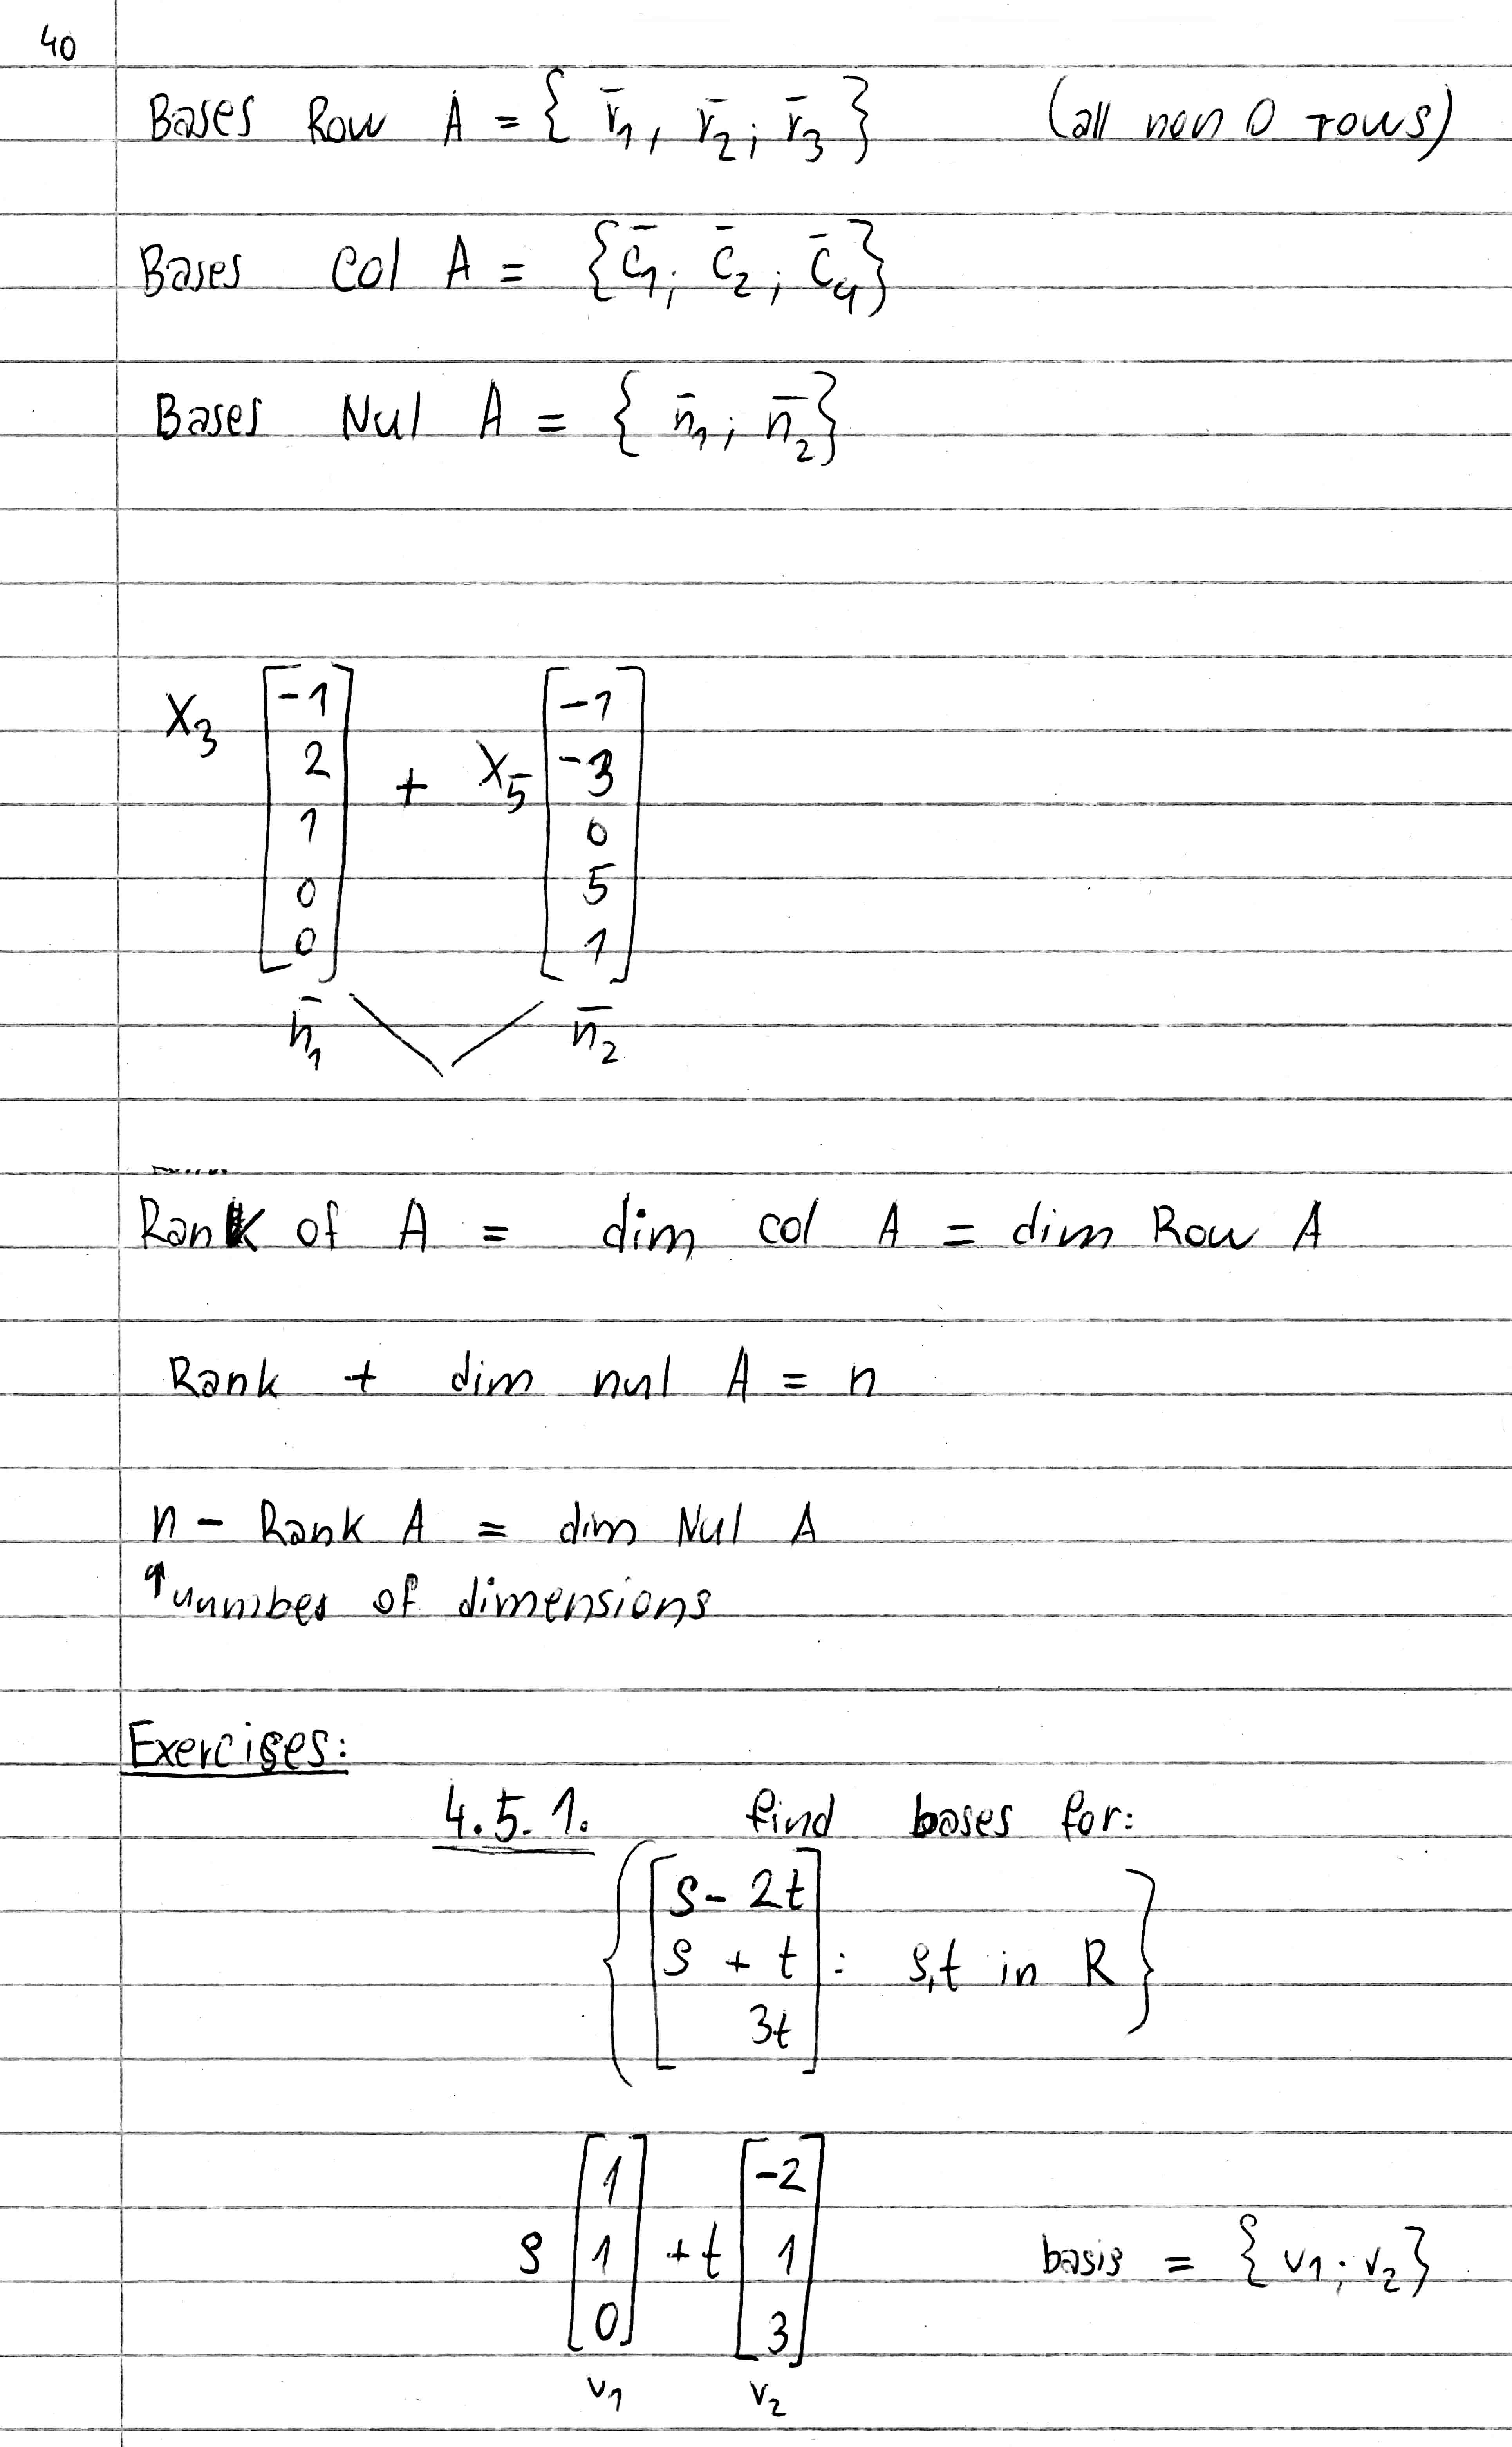 40
Bases Row A = { r̄₁, r̄₂; r̄₃ } (all non 0 rows)
Bases Col A = { c̄₁; c̄₂; c̄₄ }
Bases Nul A = { n̄₁; n̄₂ }
x₃ [-1 2 1 0 0] + x₅ [-1 -3 0 5 1]
n̄₁ n̄₂
Rank of A = dim col A = dim Row A
Rank + dim nul A = n
n - Rank A = dim Nul A
↑ number of dimensions
Exercises:
4.5.1. find bases for:
{ [s - 2t
s + t : s,t in R }
3t]
s [1 1 0] + t [-2 1 3] basis = { v₁; v₂ }
v₁ v₂